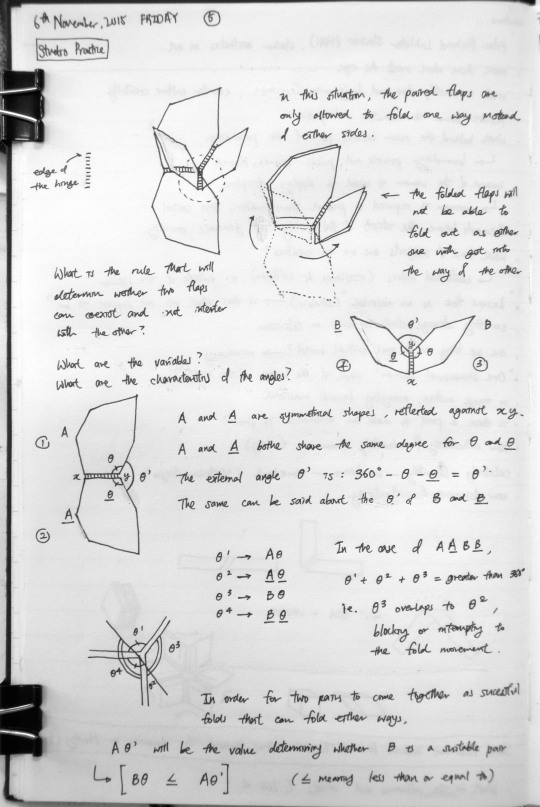 6th November, 2015 FRIDAY ⑤
Studio Practice
in this situation, the paired flaps are
only allowed to fold one way instead
of either sides.
edge of
the hinge
← the folded flaps will
not be able to
fold out as either
one with get into
the way of the other
What is the rule that will
determin wether two flaps
can coexist and not interfer
with the other?
What are the variables?
What are the characteristics of the angles?
B θ' B
θ y θ
② x ③
① A
θ
x y θ'
θ
A
②
A and A are symmetrical shapes, reflected against xy.
A and A bothe share the same degree for θ and θ
The external angle θ' is: 360° - θ - θ = θ'
The same can be said about the θ' of B and B
θ¹ → Aθ
θ² → Aθ
θ³ → Bθ
θ⁴ → Bθ
In the case of A A B B,
θ¹ + θ² + θ³ = greater than 360°
i.e. θ³ overlaps to θ²,
blocking or interupting to
the fold movement.
θ¹
θ³
θ⁴
θ²
In order for two pairs to come together as sucessful
folds that can fold either ways,
Aθ' will be the value determining whether B is a suitable pair
↳ [Bθ ≤ Aθ'] (≤ meaning less than or equal to)